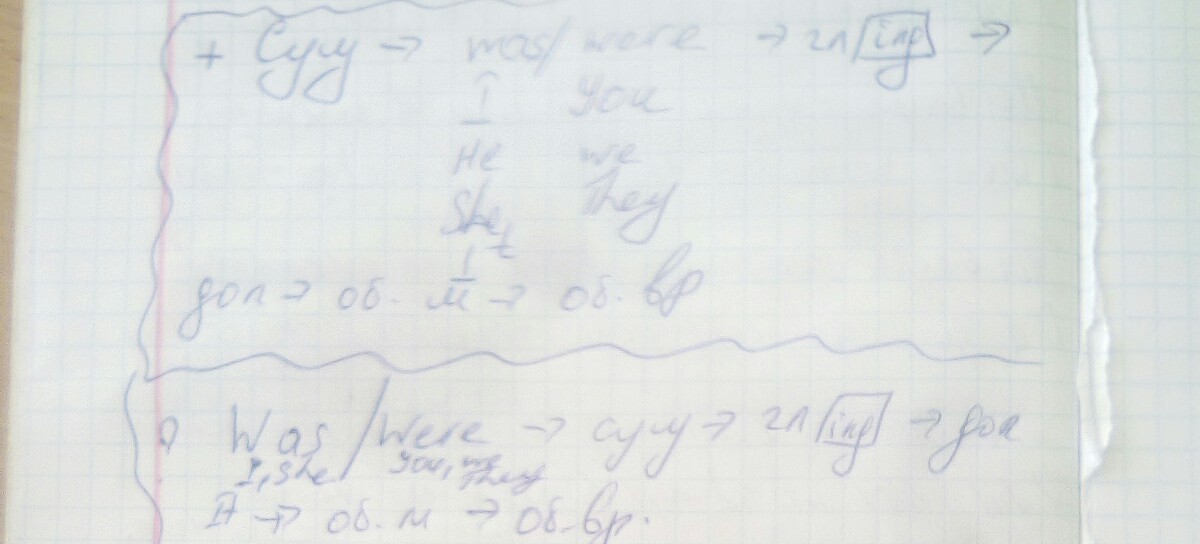 + Сущ → was/were → гл ing →
I You
He we
She They
It
доп → об. м → об. вр
? Was / Were → сущ → гл ing → доп
I, She You, we
It They
→ об. м → об. вр.